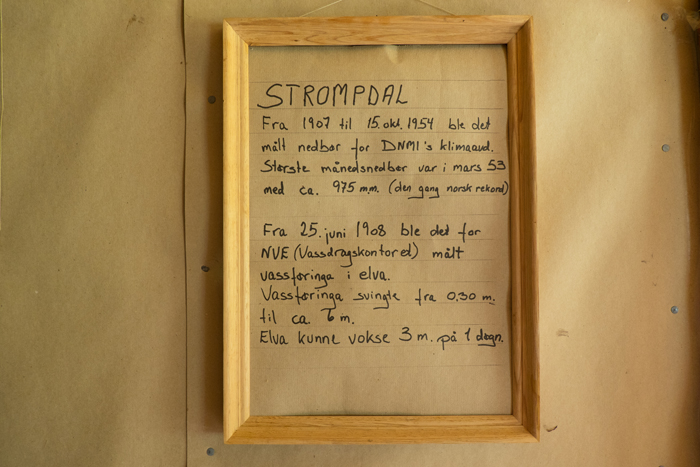 STROMPDAL
Fra 1907 til 15. okt. 1954 ble det
målt nedbør for DNMI's klimaavd.
Største månedsnedbør var i mars 53
med ca. 975 m.m. (den gang norsk rekord)
Fra 25. juni 1908 ble det for
NVE (Vassdragskontoret) målt
vassføringa i elva.
Vassføringa svingte fra 0.30 m.
til ca 6 m.
Elva kunne vokse 3 m. på 1 døgn.